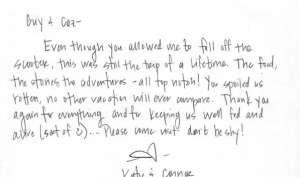 Guy + Caz-
Even though you allowed me to fall off the
scooter, this was still the trip of a lifetime. The food,
the stories the adventures - all top notch! You spoiled us
rotten, no other vacation will ever compare. Thank you
again for everything and for keeping us well fed and
alive (sort of)... Please come visit - don't be shy!
Katy + Connor